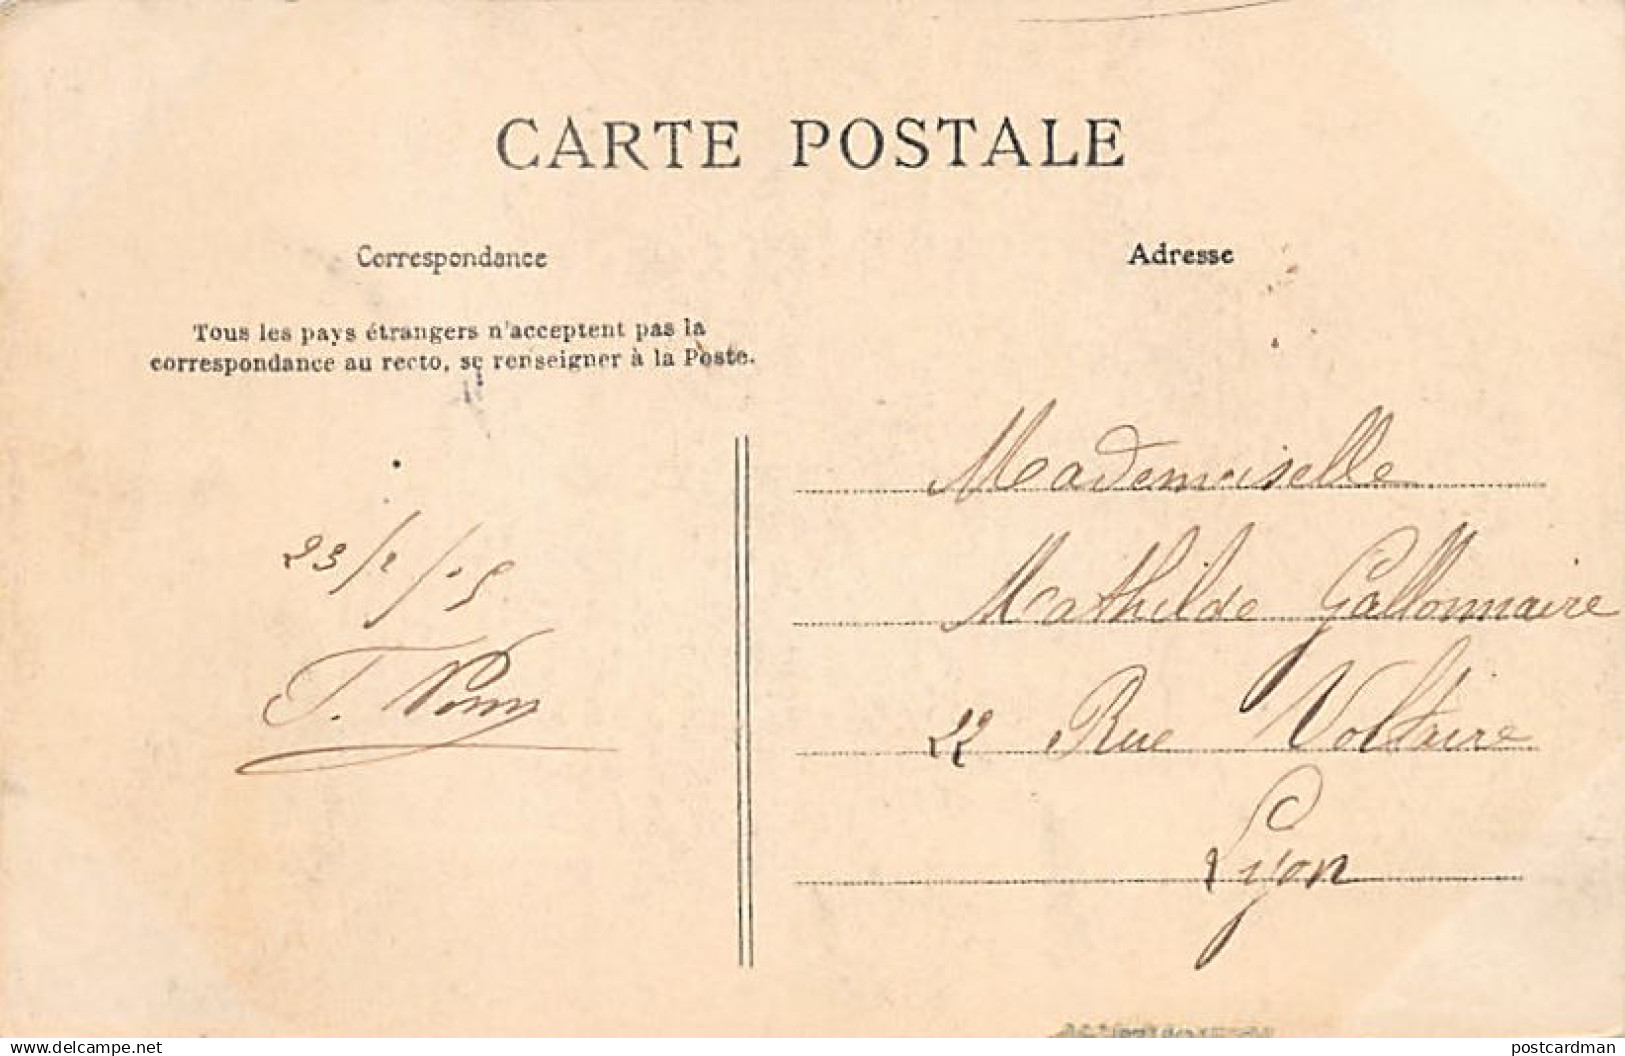 CARTE POSTALE
Correspondance
Tous les pays étrangers n'acceptent pas la
correspondance au recto, se renseigner à la Poste.
23/2/05
Adresse
Mademoiselle
Mathilde Gallonnaire
22 Rue Voltaire
Lyon
postcardman